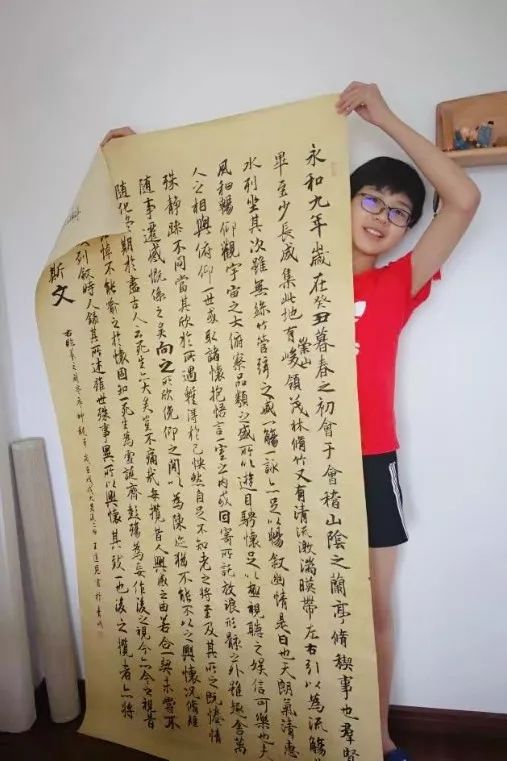 永和九年歲在癸丑暮春之初會于會稽山陰之蘭亭脩禊事也羣賢
畢至少長咸集此地有崇山峻領茂林脩竹又有清流激湍暎帶左右引以為流觴
水列坐其次雖無絲竹管弦之盛一觴一詠亦足以暢敘幽情是日也天朗氣清惠
風和暢仰觀宇宙之大俯察品類之盛所以遊目騁懷足以極視聽之娛信可樂也夫
人之相與俯仰一世或取諸懷抱悟言一室之內或因寄所託放浪形骸之外雖趣舍萬
殊靜躁不同當其欣於所遇蹔得於己怏然自足不知老之將至及其所之既惓情
隨事遷感慨係之矣向之所欣俛仰之閒以為陳迹猶不能不以之興懷況脩短
隨化終期於盡古人云死生亦大矣豈不痛哉每攬昔人興感之由若合一契未嘗不
悼不能喻之於懷固知一死生為虛誕齊彭殤為妄作後之視今亦由今之視昔
列敘時人錄其所述雖世殊事異所以興懷其致一也後之攬者亦將
斯文